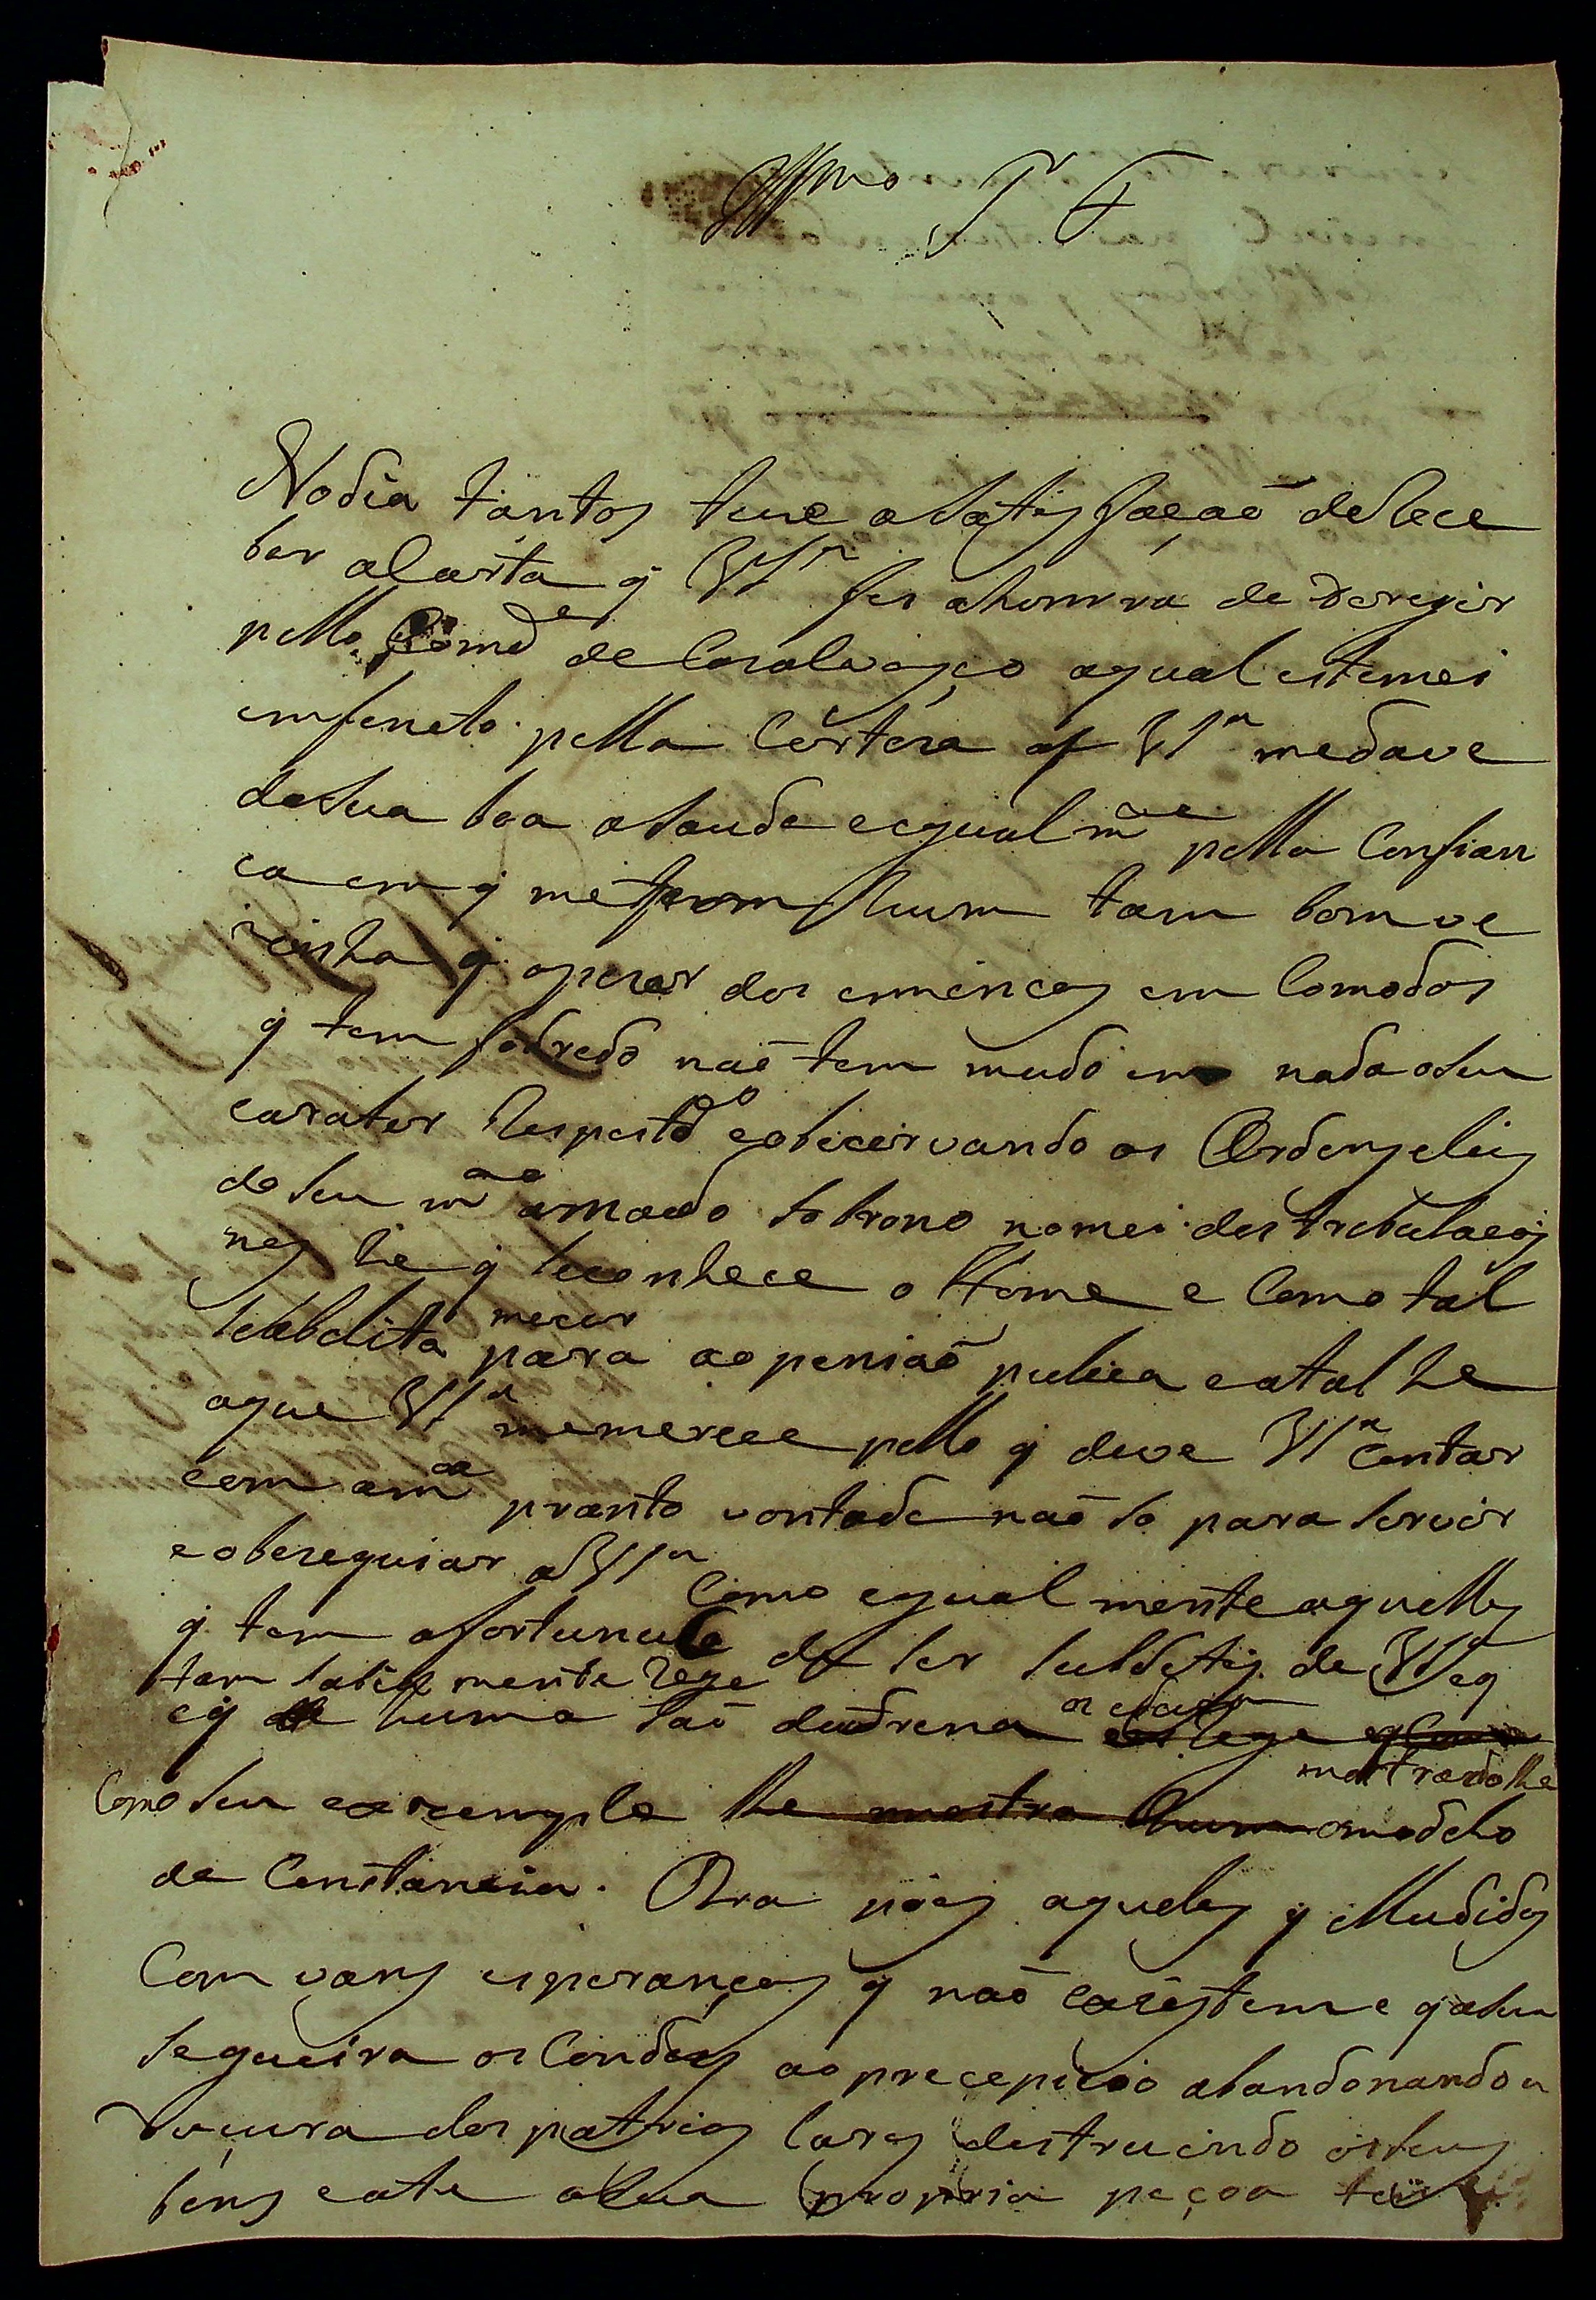 Illmo Sr F
No dia tantos tive a satisfaçaõ de Rece
ber a Carta q̃ VSª fes a honrra de Deregir
pello Comde de Casalvasco a qual estemei
emfeneto pella Certeza q̃ VSª me dava
de sua boa a saude e egualmte pella Confian
ca em q̃ me hum tam bom ve
zinho q̃ apezar dos emmencos em Comodos
q̃ tem sofredo naõ tem mudo em nada o seu
carater Respeitdo e obicervando as Ordens e leis
do seu mto amado Sobrano no mei das trebulacoi
nes he q̃ se conhece o Home e Como tal
se abelita mecer para a openiaõ pubica e a tal he
a que VSª me merece pello q̃ deve VSª Contar
com a mª pranto vontade naõ so para servir
e obsequiar a VSª Como egual mente aquelles
q̃ tem a fortuna de ser subdetos de VSª e q̃
tam sabia mente Rege
e q̃ de huma taõ duadrena os educa e os lege
mostrandolhe
Como seu exzemplo lhe mostra hum o modelo
de Constancia. Ora pois aqueles q̃ Illudidos
Com vans esperanças q̃ naõ exzistem e q̃ a sua
segueira os Condus ao precepicio abandonando a
Duçura dos patrios lares destruindo os seus
bens e ate a sua propria peçoa